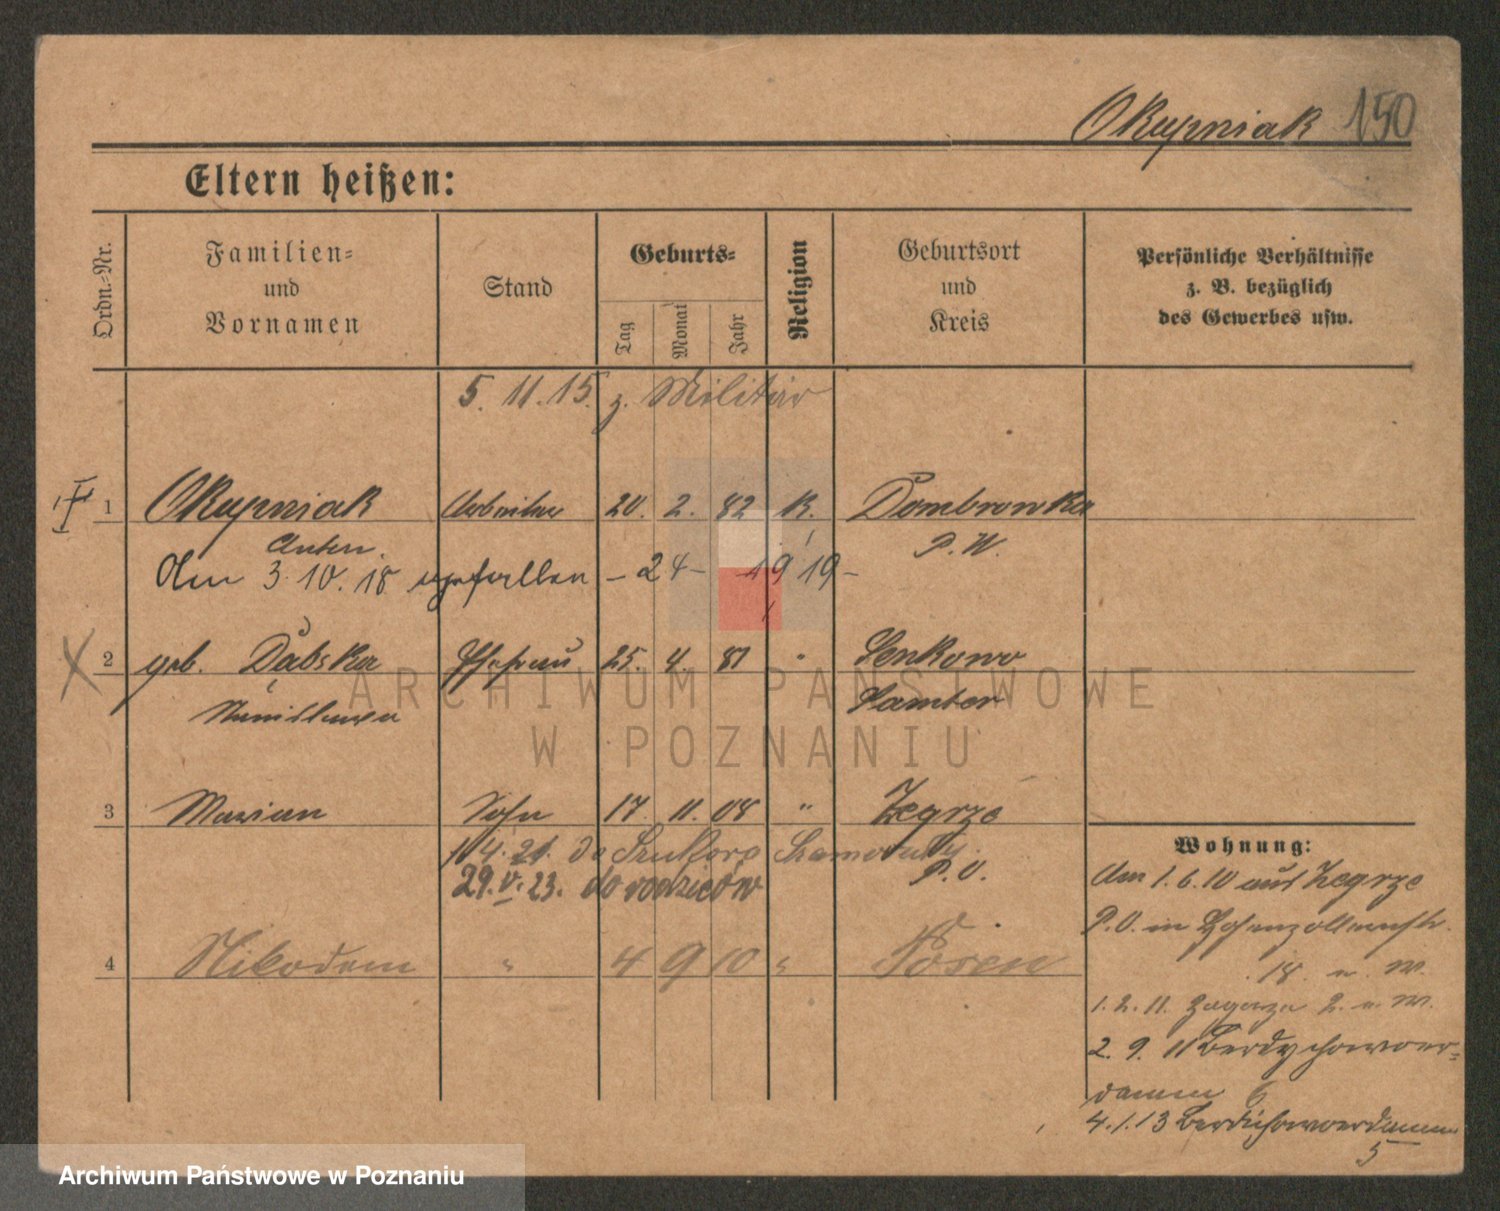 Okupniak 150
Eltern heißen:
Ordn.-Nr.
Familien-
und
Vornamen
Stand
Geburts-
Tag
Monat
Jahr
Religion
Geburtsort
und
Kreis
Persönliche Verhältnisse
z. B. bezüglich
des Gewerbes usw.
5. 11. 15. z. Militär
1 Okupniak Arbeiter 20. 2. 82 K. Dombrowka
Anton. P. W.
Am 3. 10. 18 gefallen – 24 – 1919 –
2 geb. Dąbska Ehefrau 25. 4. 81 " Senkowo
Stanislawa Samter
3 Marian Sohn 17. 11. 08 " Zegrze
P. O.
4. 21. do Szamotuły.
29. V. 23. do rodziców
4 Nikodem " 4 9 10 " Posen
Wohnung:
Am 1. 6. 10 aus Zegrze
P. O. in Hohenzollernstr.
18 n. W.
1. 2. 11. 2. n. W.
2. 9. 11 Berdychowoer-
damm 6
4. 1. 13 Berdichowoerdamm
5
ARCHIWUM PAŃSTWOWE
W POZNANIU
Archiwum Państwowe w Poznaniu